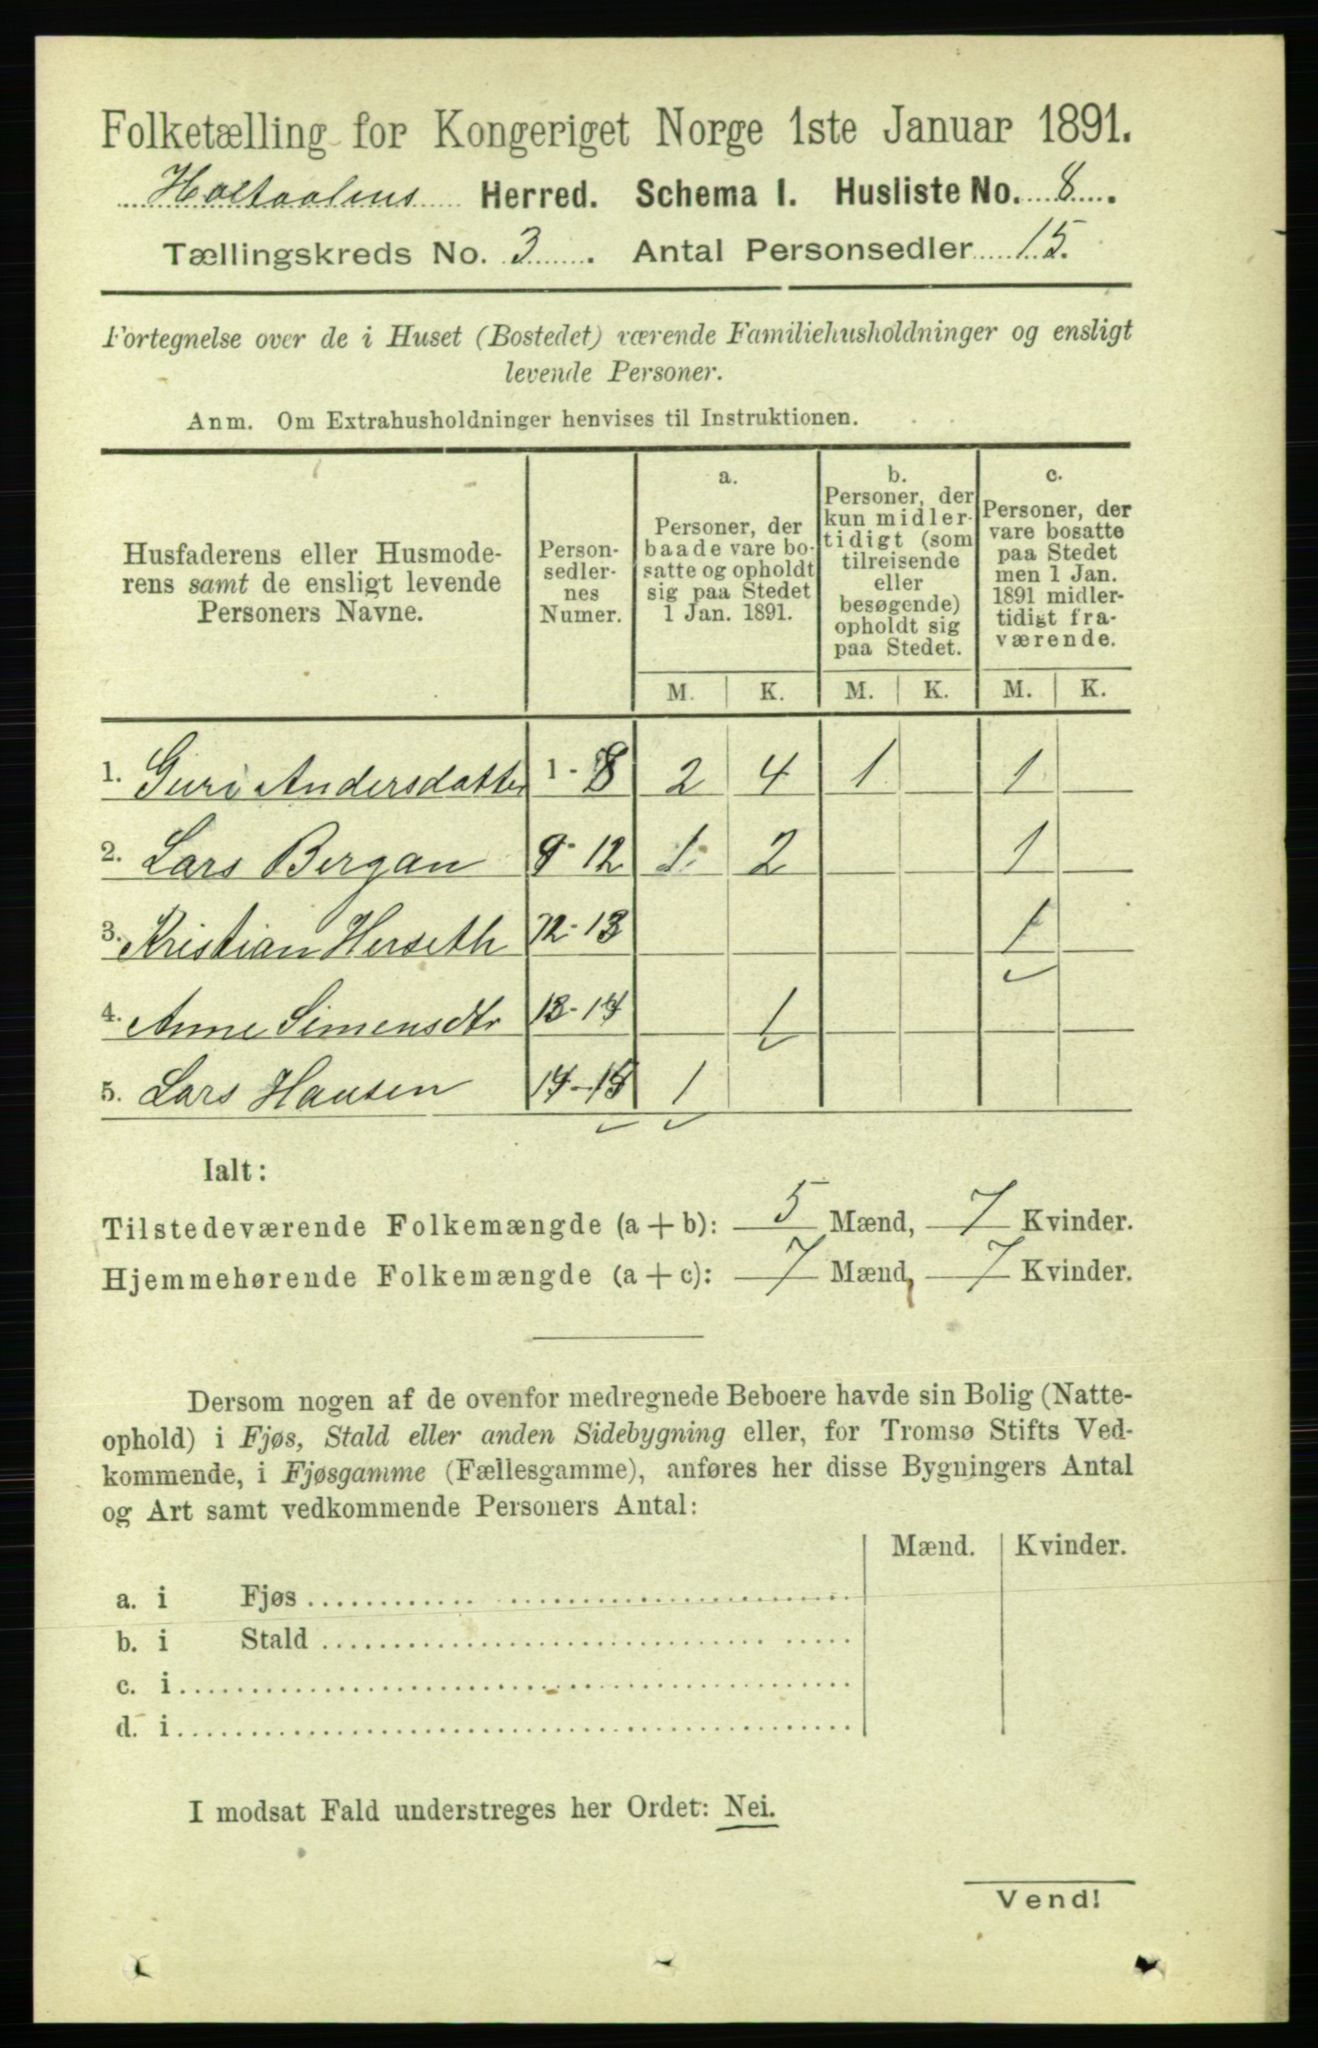 Folketælling for Kongeriget Norge 1ste Januar 1891.
Holtaalens Herred. Schema I. Husliste No. 8.
Tællingskreds No. 3. Antal Personsedler 15.
Fortegnelse over de i Huset (Bostedet) værende Familiehusholdninger og ensligt
levende Personer.
Anm. Om Extrahusholdninger henvises til Instruktionen.
Husfaderens eller Husmode-
rens samt de ensligt levende
Personers Navne.
Person-
sedler-
nes
Numer.
a.
Personer, der
baade vare bo-
satte og opholdt
sig paa Stedet
1 Jan. 1891.
b.
Personer, der
kun midler-
tidigt (som
tilreisende
eller
besøgende)
opholdt sig
paa Stedet.
c.
Personer, der
vare bosatte
paa Stedet
men 1 Jan.
1891 midler-
tidigt fra-
værende.
M. K. M. K. M. K.
1. Guri Andersdatter 1-8 2 4 1 1
2. Lars Bergan 9-12 1 2 1
3. Kristian Herseth 12-13 1
4. Anne Simensdtr 13-14 1
5. Lars Hansen 14-15 1
Ialt:
Tilstedeværende Folkemængde (a + b): 5 Mænd, 7 Kvinder.
Hjemmehørende Folkemængde (a + c): 7 Mænd, 7 Kvinder.
Dersom nogen af de ovenfor medregnede Beboere havde sin Bolig (Natte-
ophold) i Fjøs, Stald eller anden Sidebygning eller, for Tromsø Stifts Ved-
kommende, i Fjøsgamme (Fællesgamme), anføres her disse Bygningers Antal
og Art samt vedkommende Personers Antal:
Mænd. Kvinder.
a. i Fjøs
b. i Stald
c. i
d. i
I modsat Fald understreges her Ordet: Nei.
Vend!